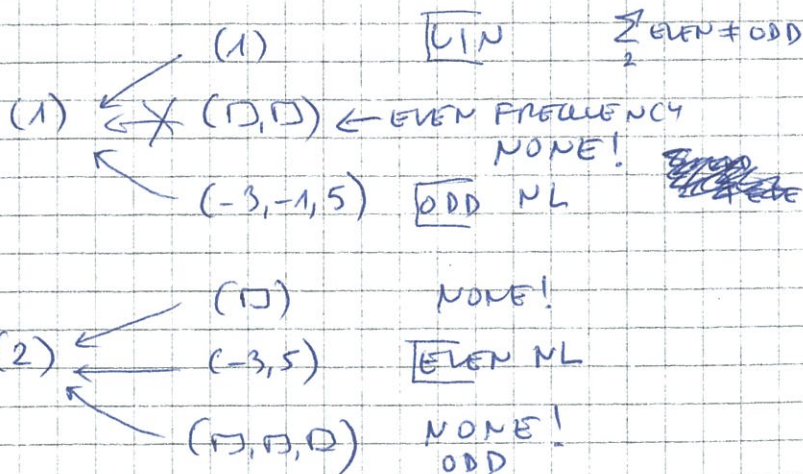 (1) LIN Σ EVEN ≠ ODD
2
(1) (□,□) ← EVEN FREQUENCY
NONE!
(-3,-1,5) ODD NL
(□) NONE!
(2) (-3,5) EVEN NL
(□,□,□) NONE!
ODD